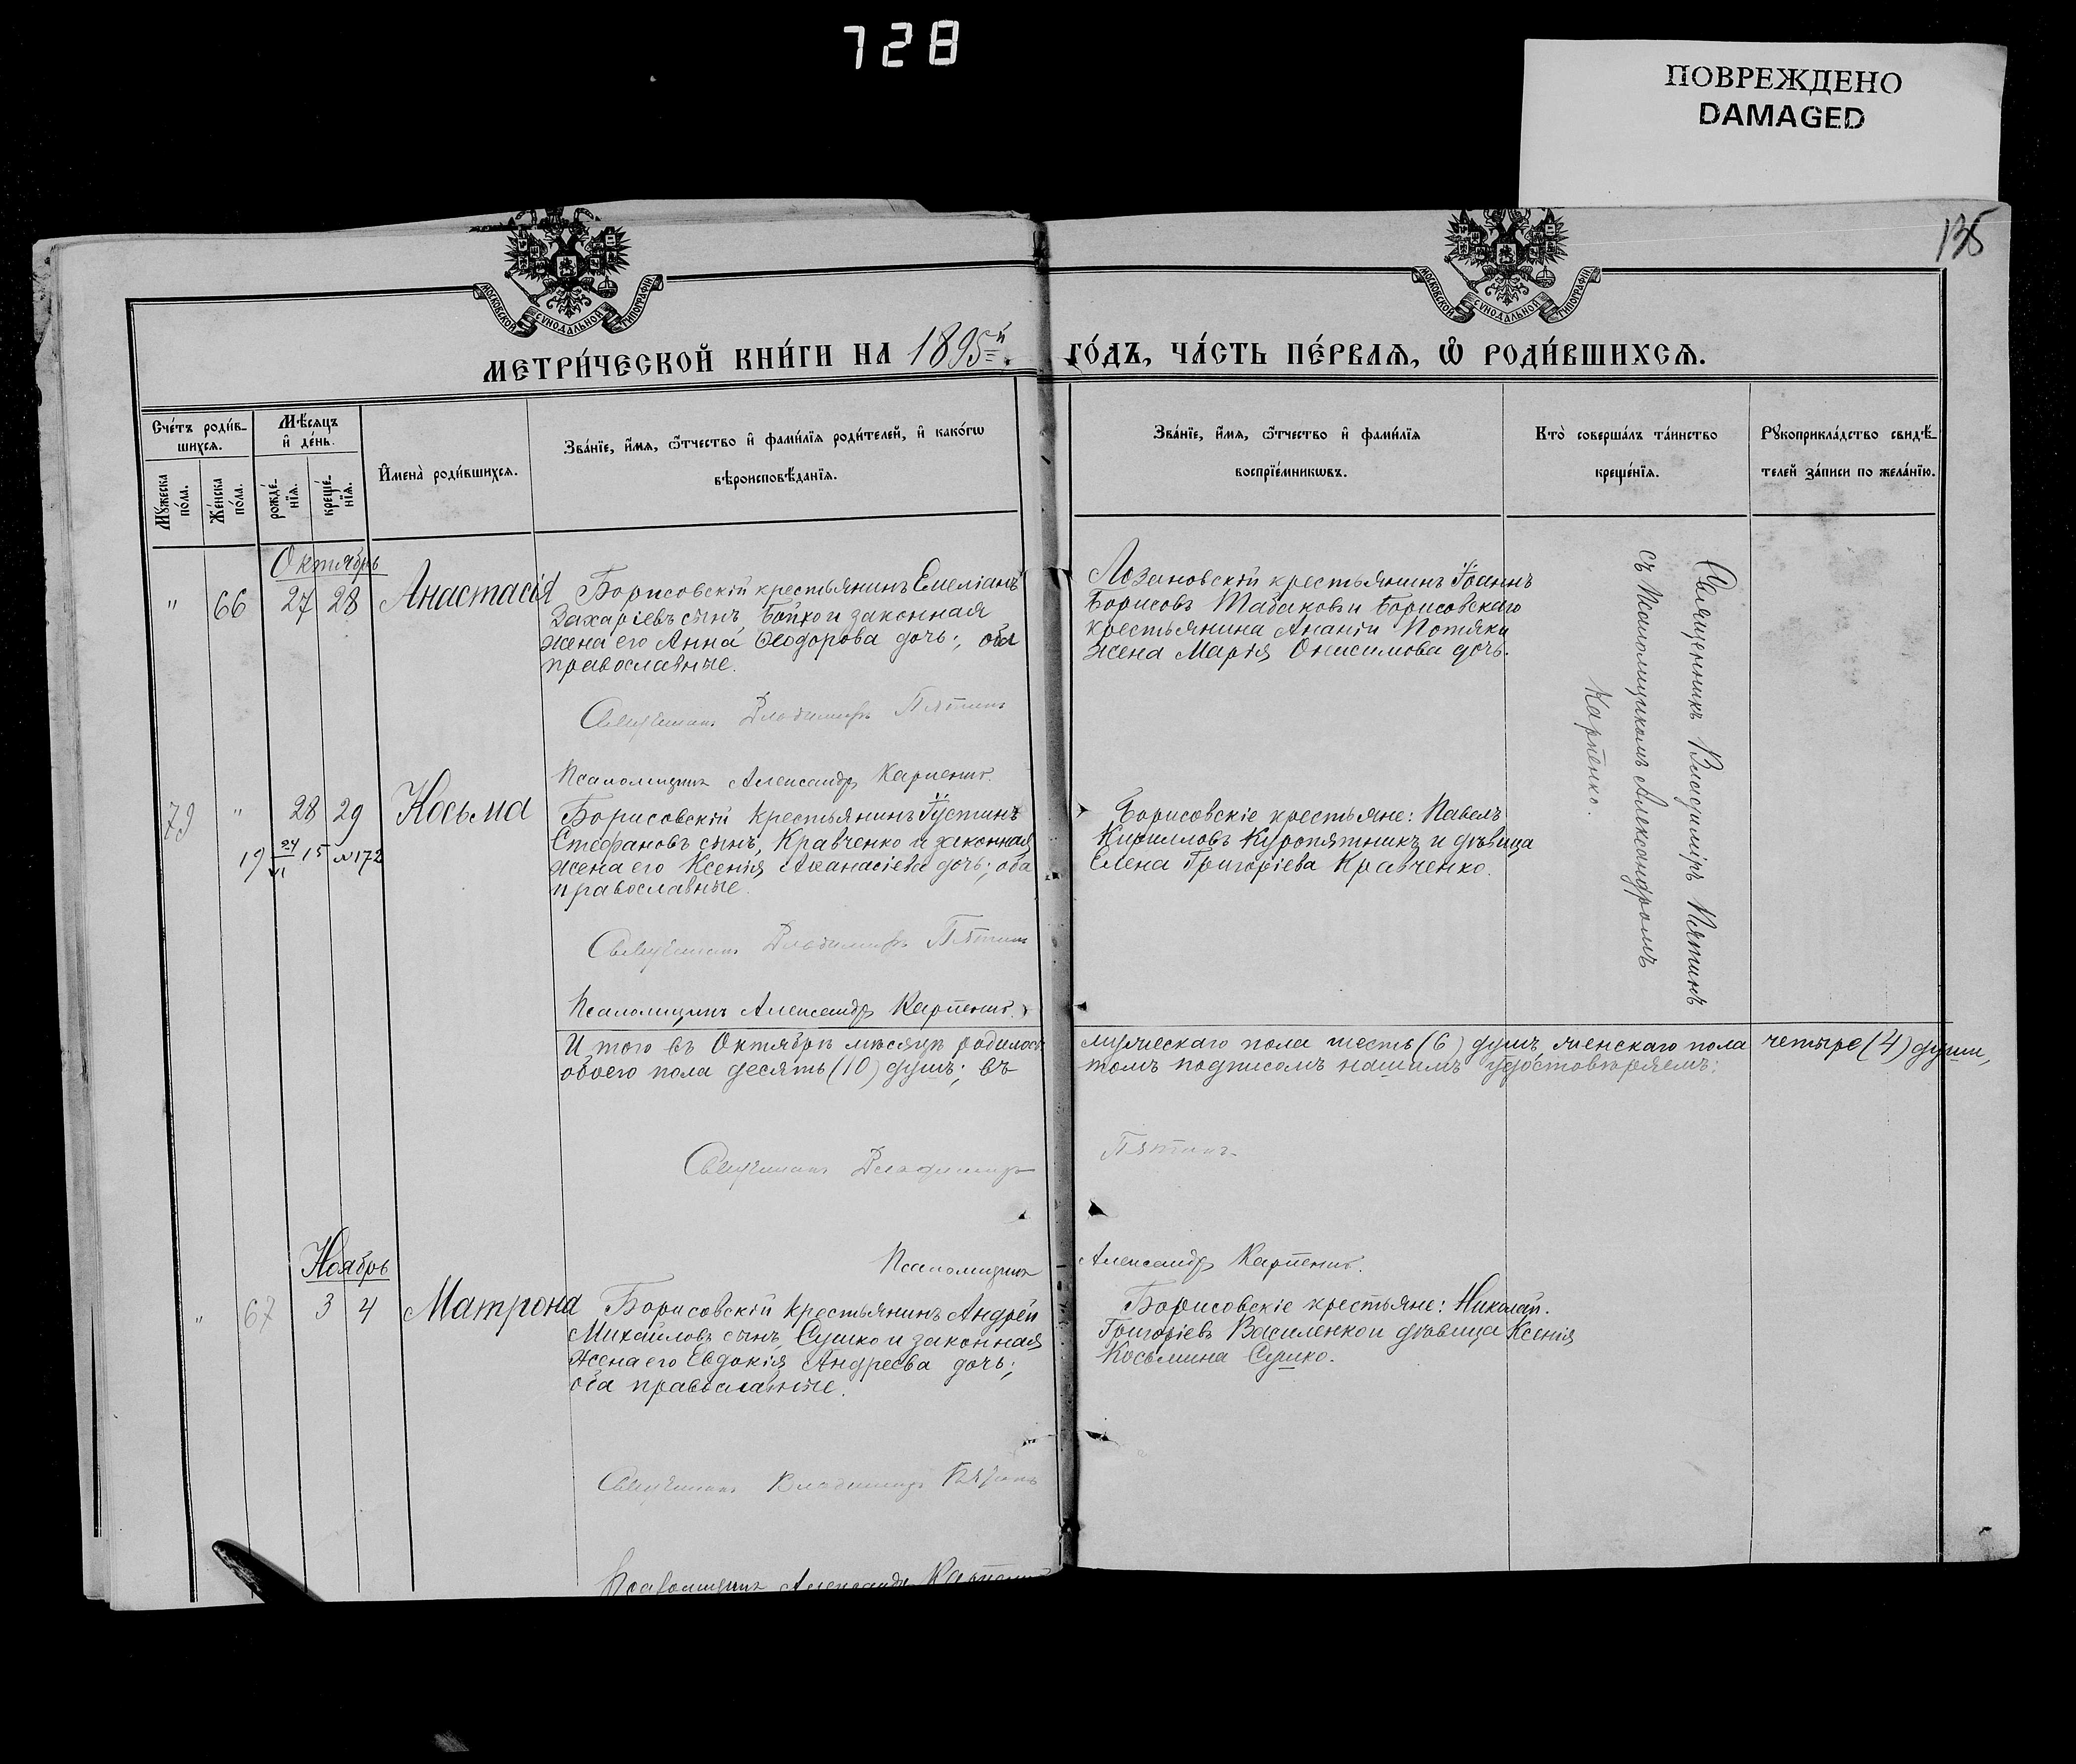 728
ПОВРЕЖДЕНО
DAMAGED
135
МОСКОВСКОЙ СѴНОДАЛЬНОЙ ТИПОГРАФІИ
МОСКОВСКОЙ СѴНОДАЛЬНОЙ ТИПОГРАФІИ
МЕТРИ́ЧЕСКОЙ КНИ́ГИ НА 1895й ГО́ДЪ, ЧА́СТЬ ПЕ́РВАѦ, Ѽ РОДИ́ВШИХСѦ.
Сче́тъ роди́в-
шихсѧ.
Мѣ́сѧцъ
и҆ де́нь.
Мꙋ́жеска
по́ла.
Же́нска
по́ла.
рожде́-
нїѧ.
креще́-
нїѧ.
И҆мена̀ роди́вшихсѧ.
Зва́нїе, и҆́мѧ, ѻ҆́тчество и҆ фами́лїѧ роди́телей, и҆ како́гѡ
вѣроисповѣ́данїѧ.
Зва́нїе, и҆́мѧ, ѻ҆́тчество и҆ фами́лїѧ
воспрїе́мникѡвъ.
Кто̀ соверша́лъ та́инство
креще́нїѧ.
Рꙋкоприкла́дство свидѣ́-
телей за́писи по жела́нїю.
Октябрь
" 66 27 28 Анастасія
Борисовскій крестьянинъ Емеліанъ
Захаріевъ сынъ, Бойко и законная
жена его Анна Ѳеодорова дочь; оба
православные.
Священникъ Владиміръ Пятинъ
Псаломщикъ Александръ Карпенко.
Лозановскій крестьянинъ Іоаннъ
Борисовъ Табаковъ и Борисовскаго
крестьянина Ананіи Потяки
жена Марія Онисимова дочь.
Священникъ Владиміръ Пятинъ
съ Псаломщикомъ Александромъ
Карпенко.
79 " 28 29 Косьма
19 24/VI 15 №172
Борисовскій крестьянинъ Іустинъ
Стефановъ сынъ, Кравченко и законная
жена его Ксенія Аѳанасіева дочь; оба
православные.
Священникъ Владиміръ Пятинъ
Псаломщикъ Александръ Карпенко.
Борисовскіе крестьяне: Павелъ
Кирилловъ Куропятникъ и дѣвица
Елена Григоріева Кравченко.
И того въ Октябрѣ мѣсяцѣ родилось мужескаго пола шесть (6) душъ, женскаго пола четыре (4) души,
обоего пола десять (10) душъ; въ томъ подписомъ нашимъ удостовѣряемъ:
Священникъ Владиміръ Пятинъ
Псаломщикъ Александръ Карпенко.
Ноябрь
" 67 3 4 Матрона
Борисовскій крестьянинъ Андрей
Михайловъ сынъ, Сушко и законная
жена его Евдокія Андреева дочь;
оба православные.
Священникъ Владиміръ Пятинъ
Псаломщикъ Александръ Карпенко
Борисовскіе крестьяне: Николай
Григоріевъ Василенко и дѣвица Ксенія
Косьмина Сушко.